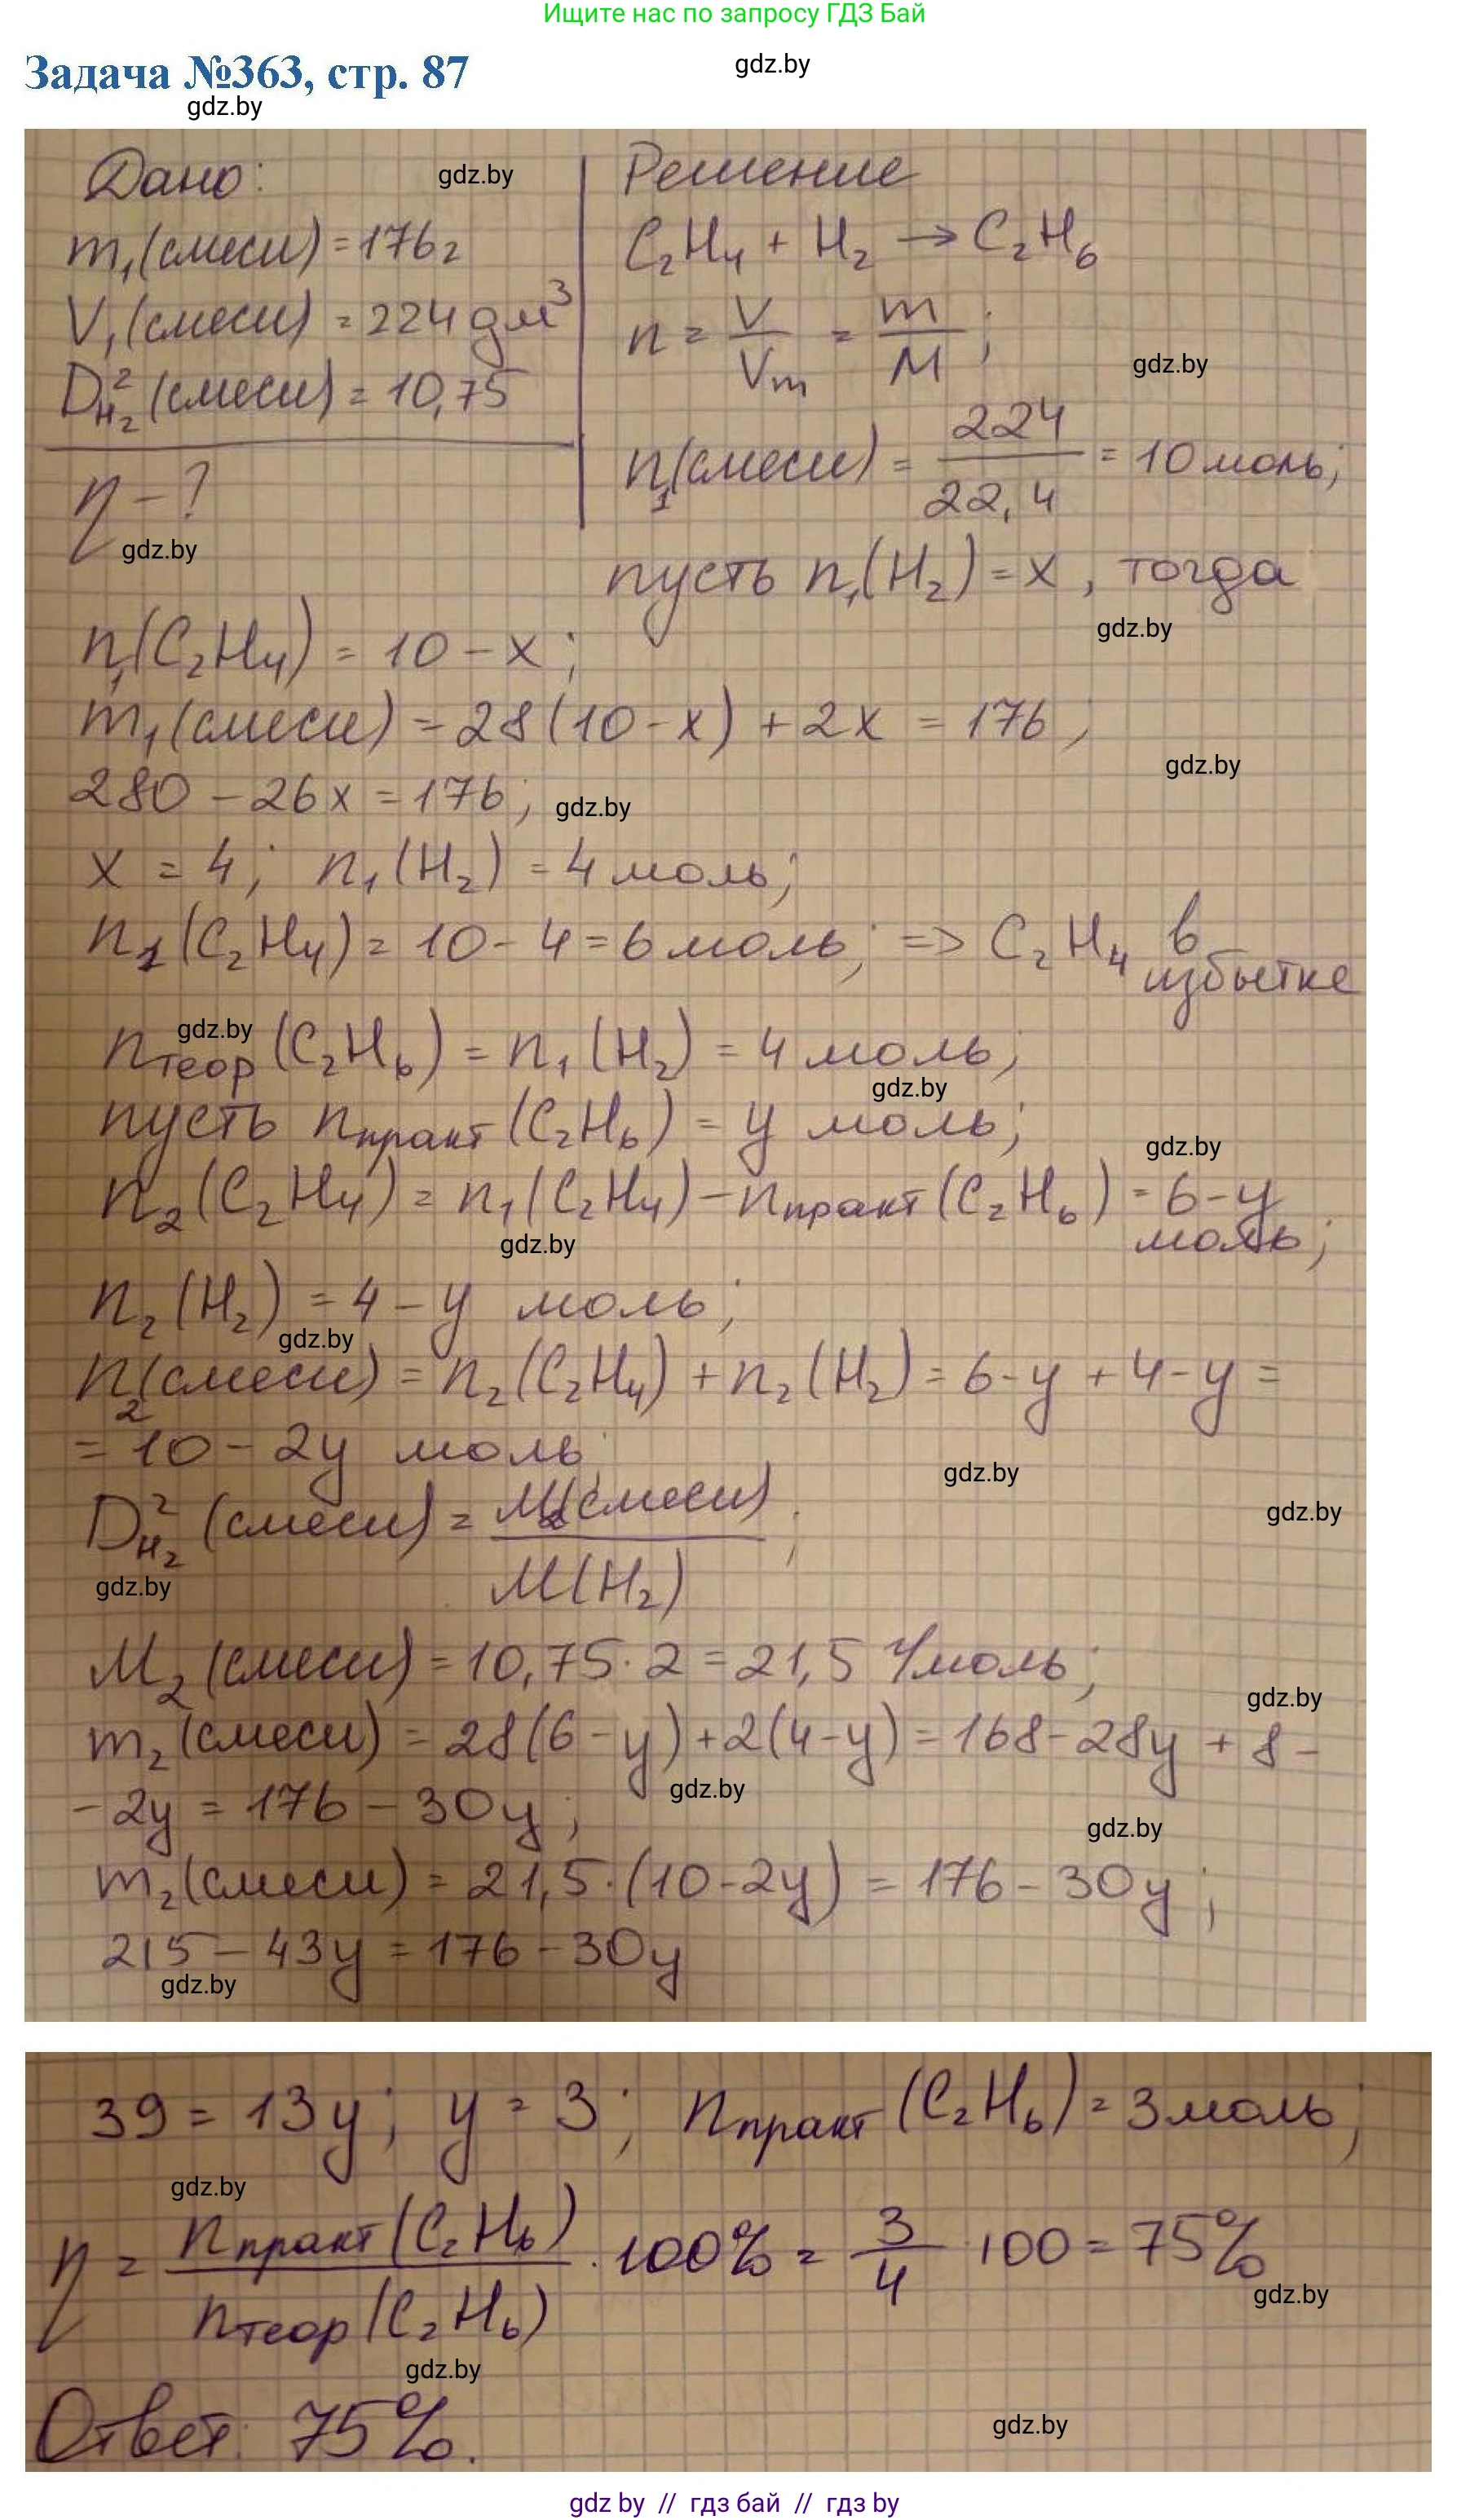 Ищите нас по запросу ГДЗ Бай
Задача №363, стр. 87
gdz.by
gdz.by
Дано:
gdz.by
Решение
m₁(смеси) = 176г
C₂H₄ + H₂ → C₂H₆
V₁(смеси) = 224 дм³
n = V/Vm = m/M;
gdz.by
D²H₂(смеси) = 10,75
n₁(смеси) = 224/22,4 = 10 моль;
η - ?
gdz.by
пусть n₁(H₂) = x, тогда
gdz.by
n₁(C₂H₄) = 10 - x;
m₁(смеси) = 28(10 - x) + 2x = 176;
gdz.by
280 - 26x = 176;
gdz.by
x = 4; n₁(H₂) = 4 моль;
n₁(C₂H₄) = 10 - 4 = 6 моль; => C₂H₄ в избытке
gdz.by
nтеор(C₂H₆) = n₁(H₂) = 4 моль;
gdz.by
пусть nпракт(C₂H₆) = y моль;
gdz.by
n₂(C₂H₄) = n₁(C₂H₄) - nпракт(C₂H₆) = 6 - y моль;
gdz.by
n₂(H₂) = 4 - y моль;
gdz.by
n₂(смеси) = n₂(C₂H₄) + n₂(H₂) = 6 - y + 4 - y =
= 10 - 2y моль
gdz.by
D²H₂(смеси) = M₂(смеси)/M(H₂);
gdz.by
gdz.by
M₂(смеси) = 10,75 · 2 = 21,5 г/моль;
gdz.by
m₂(смеси) = 28(6 - y) + 2(4 - y) = 168 - 28y + 8 -
gdz.by
- 2y = 176 - 30y;
gdz.by
m₂(смеси) = 21,5 · (10 - 2y) = 176 - 30y;
215 - 43y = 176 - 30y
gdz.by
39 = 13y; y = 3; nпракт(C₂H₆) = 3 моль;
gdz.by
η = nпракт(C₂H₆)/nтеор(C₂H₆) · 100% = 3/4 100 = 75%
gdz.by
gdz.by
Ответ: 75%.
gdz.by
gdz by // гдз бай // гдз by